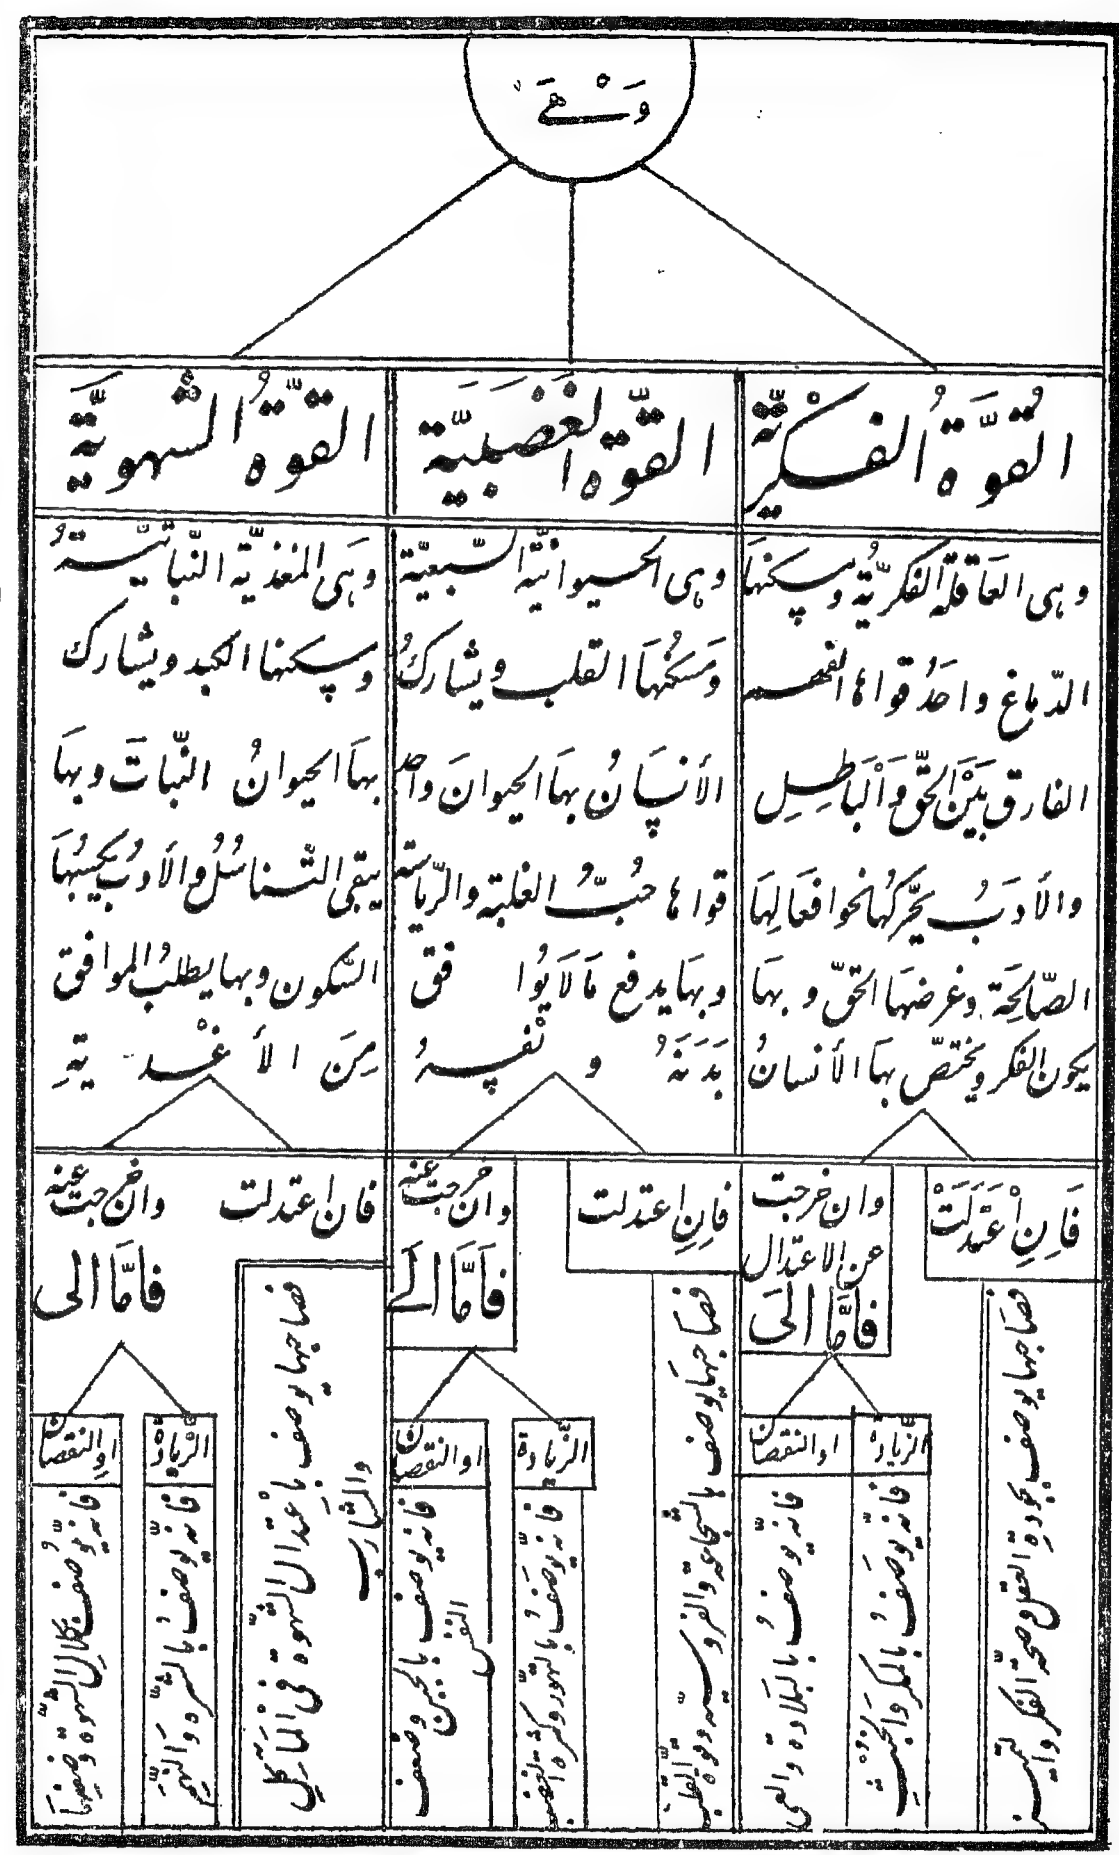 وَهْيَ
القُوَّةُ الفِكْرِيَّة
وهى العَاقلة الفكريّة ومسكنها
الدّماغ واحدُ قواها الفهم
الفارق بَيْنَ الحَقّ وَالْبَاطِلِ
والأدَبُ يحرّكها نحوا فعَالِهَا
الصّالِحَة وغرضهَا الحقّ و بهَا
يكون الفكر ويختصّ بهَا الأنسانُ
فَاِنِ اعْتَدَلَتْ
فصاحبها يوصف بجودةِ العقل وصحّة الفكر والتميز
وان خرجت
عن الاعتدال
فَاَمَّا الىَ
الزّيادة
فانه يوصَفُ بالمكر وَالخُبْثِ
او النقصان
فانّه يوصفُ بالبَلادة والعى
القوّة الغَضَبَيَّة
وهى الحيوانيّة السّبعيّة
وَمَسكنُهَا القلب ويشاركُ
الأنسَانُ بهَا الحيوانَ واحد
قواها حُبُّ الغلبة والرّياسة
وبهَا يدفع مَا لاَ يُوافق
بَدَنَهُ و نْفسهُ
فاِنِ اعتدلت
فصاحبهَا يوصف بالشجاعة والفروسيّة وقوة القلب
وان خرجت عنه
فَاَمَّا الى
الزّيادة
فانّه يوصَفُ بالتهوّر وكثرة الغضب
او النقصان
فانه يوصف بالجبن وضعف
النفس
القوّةُ الشّهويَّة
وهَى المغذيّة النّباتيّة
ومسكنها الكبد ويشارك
بهَا الحيوانُ النّباتَ وبهَا
يبقى التّناسُلُ والأدبُ يكسبُهَا
السّكون وبها يطلبُ الموافق
مِنَ الأغْديَةِ
فان اعتدلت
فصاحبها يوصف باعْتدال الشّهوة فى المَآكِلِ
والمشارب
وان خرجت عنه
فامَّا الى
الزّيادة
فانّه يوصفُ بالشّره وَالنّهم
او النقصان
فانه يُوصَف بكلالِ الشّهوة وضعفهَا